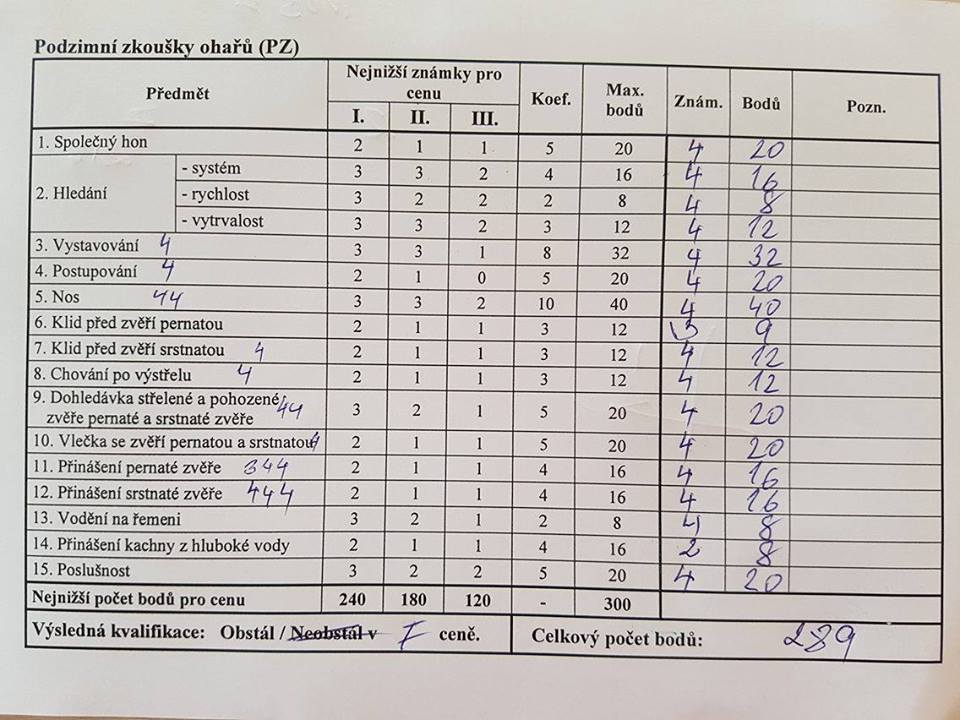 Podzimní zkoušky ohařů (PZ)
Předmět Nejnižší známky pro cenu Koef. Max. bodů Znám. Bodů Pozn.
I. II. III.
1. Společný hon 2 1 1 5 20 4 20
2. Hledání - systém 3 3 2 4 16 4 16
- rychlost 3 2 2 2 8 4 8
- vytrvalost 3 3 2 3 12 4 12
3. Vystavování 4 3 3 1 8 32 4 32
4. Postupování 4 2 1 0 5 20 4 20
5. Nos 44 3 3 2 10 40 4 40
6. Klid před zvěří pernatou 2 1 1 3 12 3 9
7. Klid před zvěří srstnatou 4 2 1 1 3 12 4 12
8. Chování po výstřelu 4 2 1 1 3 12 4 12
9. Dohledávka střelené a pohozené zvěře pernaté a srstnaté zvěře 44 3 2 1 5 20 4 20
10. Vlečka se zvěří pernatou a srstnatou 4 2 1 1 5 20 4 20
11. Přinášení pernaté zvěře 344 2 1 1 4 16 4 16
12. Přinášení srstnaté zvěře 444 2 1 1 4 16 4 16
13. Vodění na řemeni 3 2 1 2 8 4 8
14. Přinášení kachny z hluboké vody 2 1 1 4 16 2 8
15. Poslušnost 3 2 2 5 20 4 20
Nejnižší počet bodů pro cenu 240 180 120 - 300
Výsledná kvalifikace: Obstál / Neobstál v I ceně. Celkový počet bodů: 289